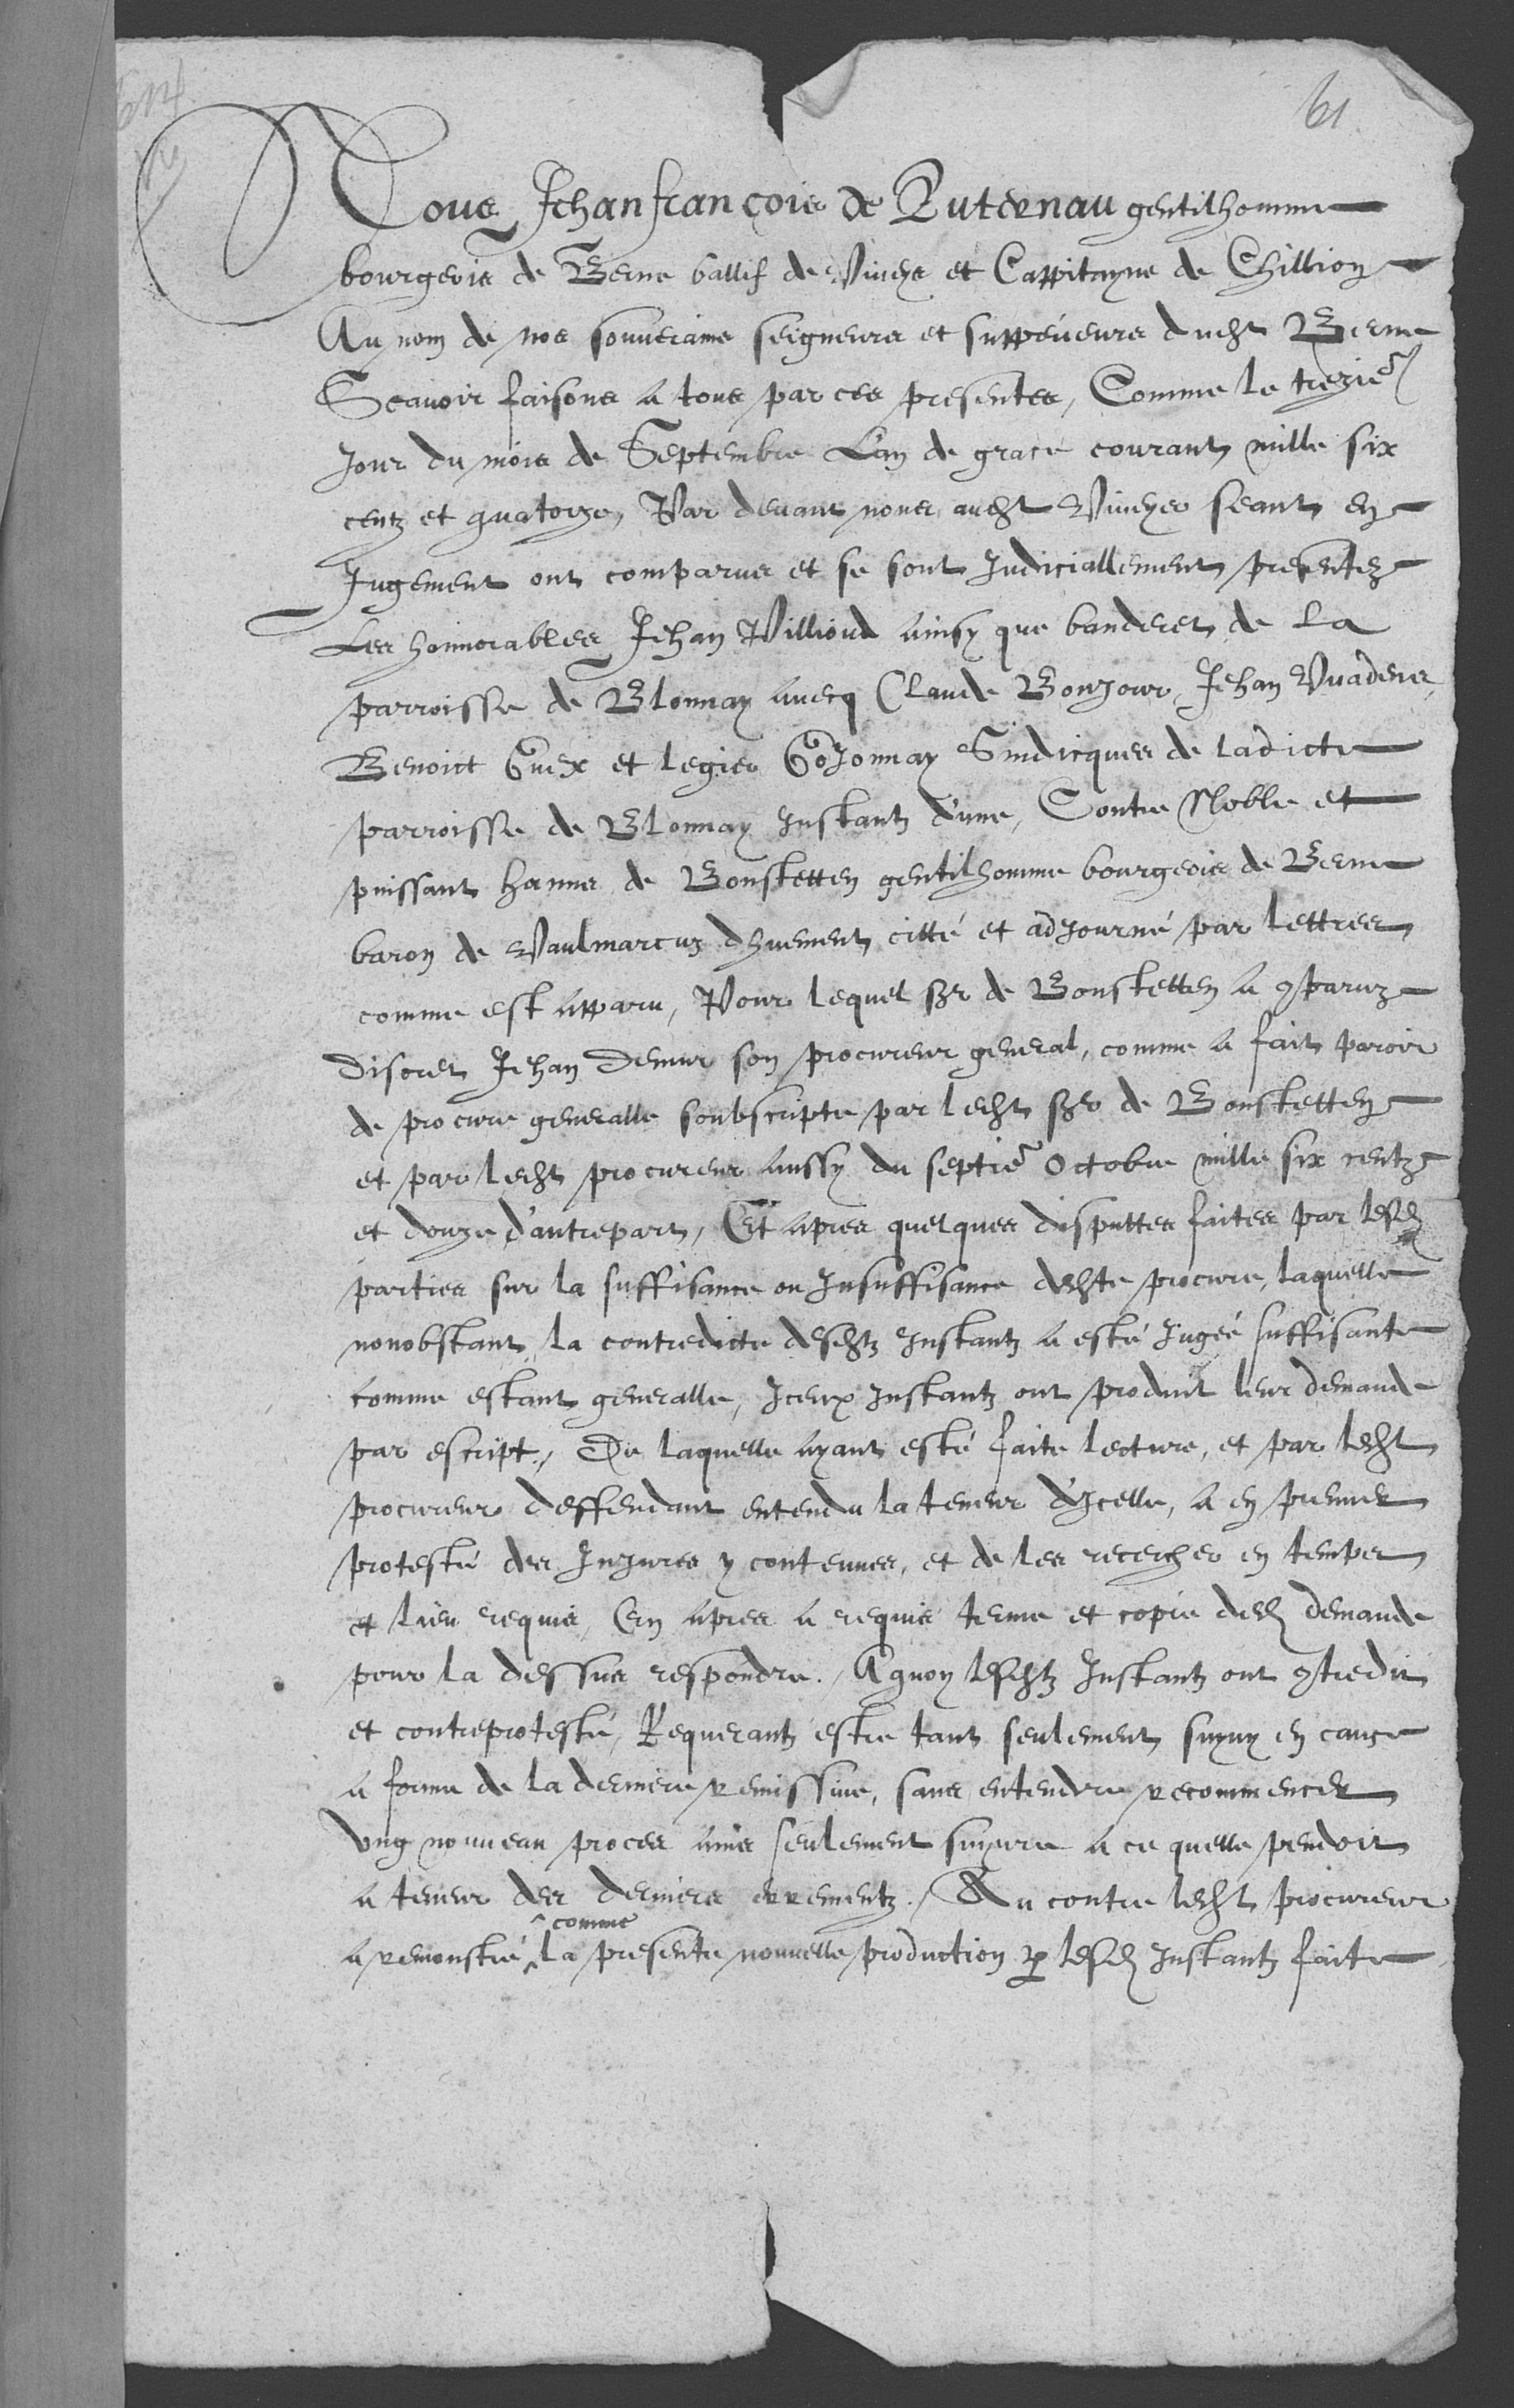 61
Nous Jehan françois de Lutternau gentilhomme
bourgeois de Berne ballif de Viveys et Cappitayne de Chillion
Au nom de nos souverains seigneurs et suppérieurs dudt Berne
Scavoir faisons a tous par ces presentes, Comme le treziē
Jour du mois de Septembre Lan de grace courant mille six
centz et quatorze, Par devant nous audt Viveys seant en
Jugement ont comparus et se sont Judiciallement presentez
Les honnorables Jehan Pillioud ainsy que banderet de la
parroisse de Blonnay avecq Claude Bonjour, Jehan Vuadens,
Benoict Guex et Legier Cojonnay Sindicques de ladicte
parroisse de Blonnay Instantz d'une, Contre Noble et
puissant Hanns de Bonstetten gentilhomme bourgeois de Berne
baron de Vaulmarcuz dhuement citté et adjourné par lettres
comme est apparu, Pour lequel Sr de Bonstetten a 9paruz
discret Jehan Demur son procureur general, comme a fait paroir
de procure generalle soubscripte par ledt Sr de Bonstetten
et par ledt procureur aussy du septiē Octobre mille six centz
et douze d'autrepart, Et apres quelques disputtes faites par lesd
parties sur la suffisance ou Insuffisance dedte procure, laquelle
nonobstant la contredicte desdtz Instantz a esté Jugéé suffisante
comme estant generalle, Iceux Instantz ont produit leur demande
par escript, De laquelle ayant esté faite lecture, et par ledt
procureur deffendant entendu la teneur d'Icelle, a en premier
protesté des Injures y contenues, et de les recercher en temps
et lieu requis, En apres a requis terme et copie ded demande
pour la dessus respondre. A quoy lesdtz Instantz ont 9tredit
et contreprotesté, Requerantz estre tant seulement suyvy en cause
a forme de la derniere remissive, sans entendre recommencer
ung nouveau proces ains seulement suyvre a ce quelle pendoit
a teneur des derniers errementz. Au contre ledt procureur
a remonstré comme la presente nouvelle production p lesd Instantz faite